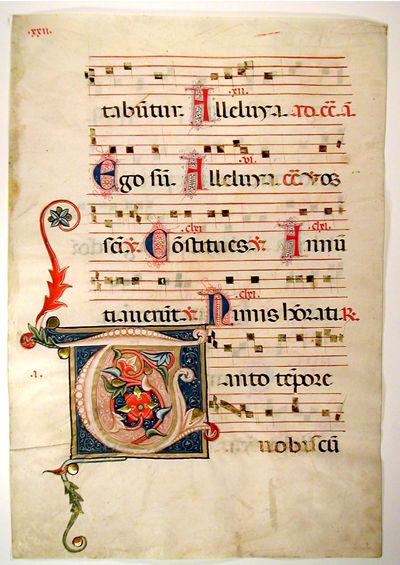 .xxii.
.xii.
tabūtur. Alleluya. ad
.vi.
Ego sū. Alleluya. vos
.clxi. .clxi.
sc̄i. ℣. Cōstitues ℣. Annū
.clxi.
tiaverūt ℣. Nimis hōrati R.
.i.
Tanto tēpore
uobiscū